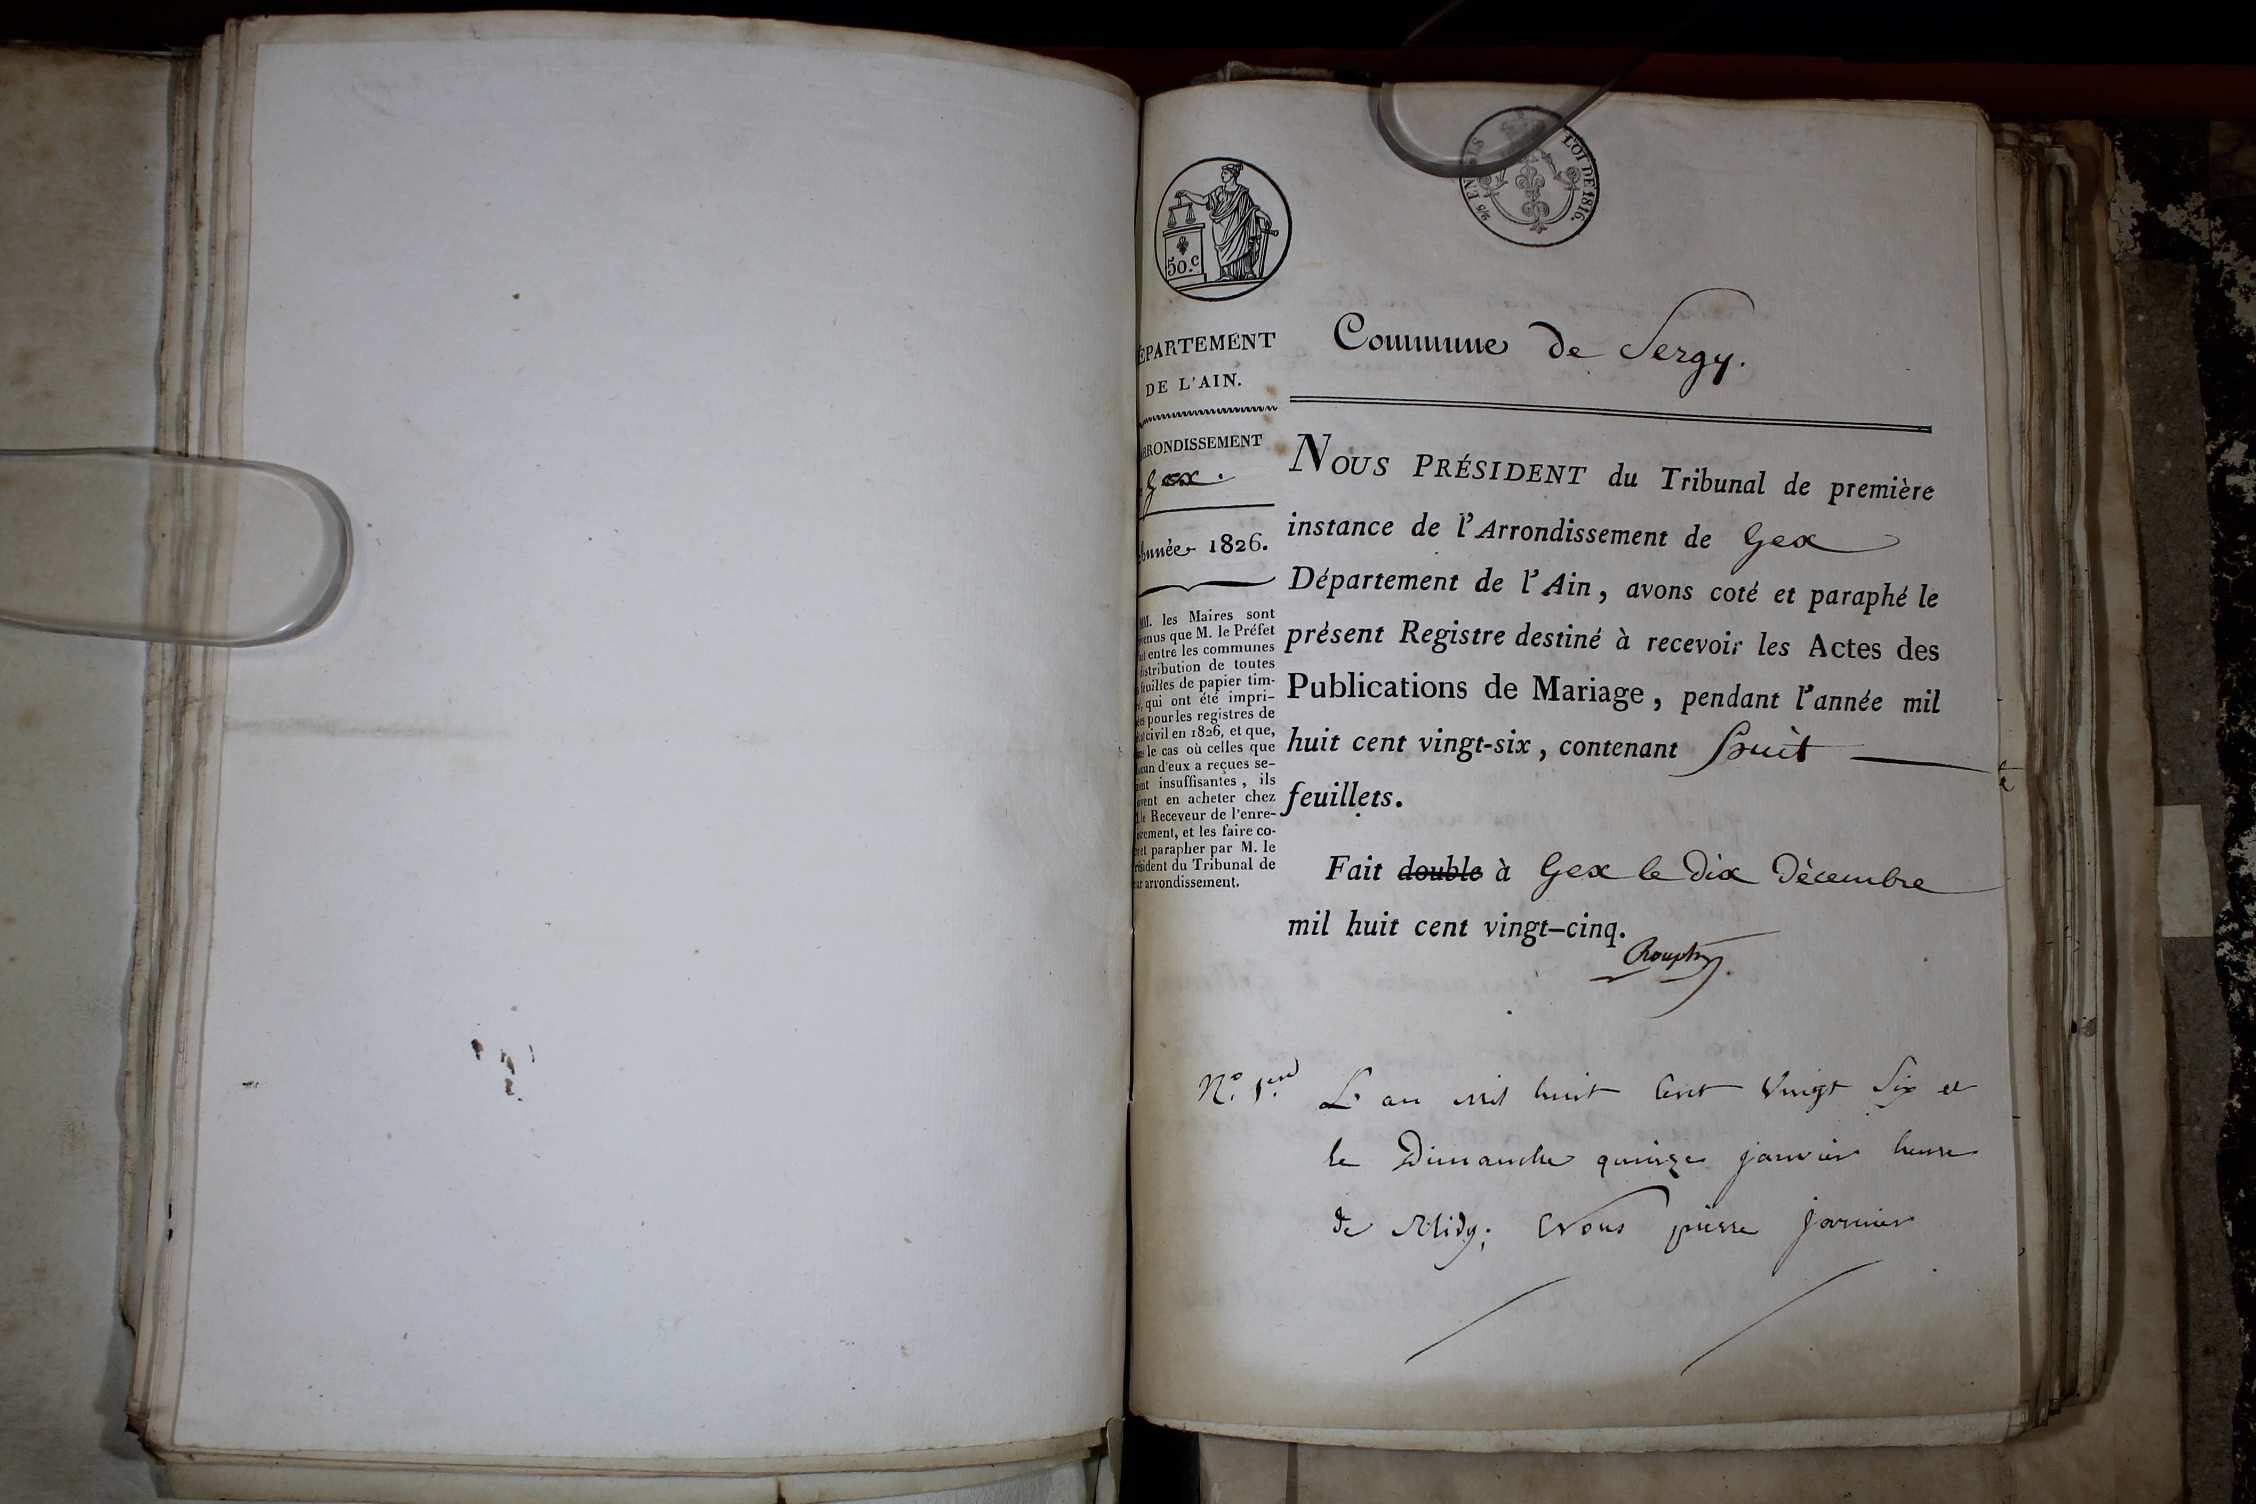 50.c
25 EN SUS
LOI DE 1816.
ÉPARTEMENT
DE L'AIN.
RRONDISSEMENT
Gex.
Année 1826.
MM. les Maires sont
venus que M. le Préfet
entre les communes
distribution de toutes
feuilles de papier tim-
, qui ont été impri-
pour les registres de
civil en 1826, et que,
le cas où celles que
cun d'eux a reçues se-
insuffisantes, ils
vent en acheter chez
le Receveur de l'enre-
rement, et les faire co-
et parapher par M. le
résident du Tribunal de
ur arrondissement.
Commune de Sergy.
NOUS PRÉSIDENT du Tribunal de première
instance de l'Arrondissement de Gex
Département de l'Ain, avons coté et paraphé le
présent Registre destiné à recevoir les Actes des
Publications de Mariage, pendant l'année mil
huit cent vingt-six, contenant huit
feuillets.
Fait double à Gex le dix Décembre
mil huit cent vingt-cinq.
N.o 1.er
L'an mil huit Cent Vingt Six et
le Dimanche quinze janvier heure
de Midy; Nous pierre